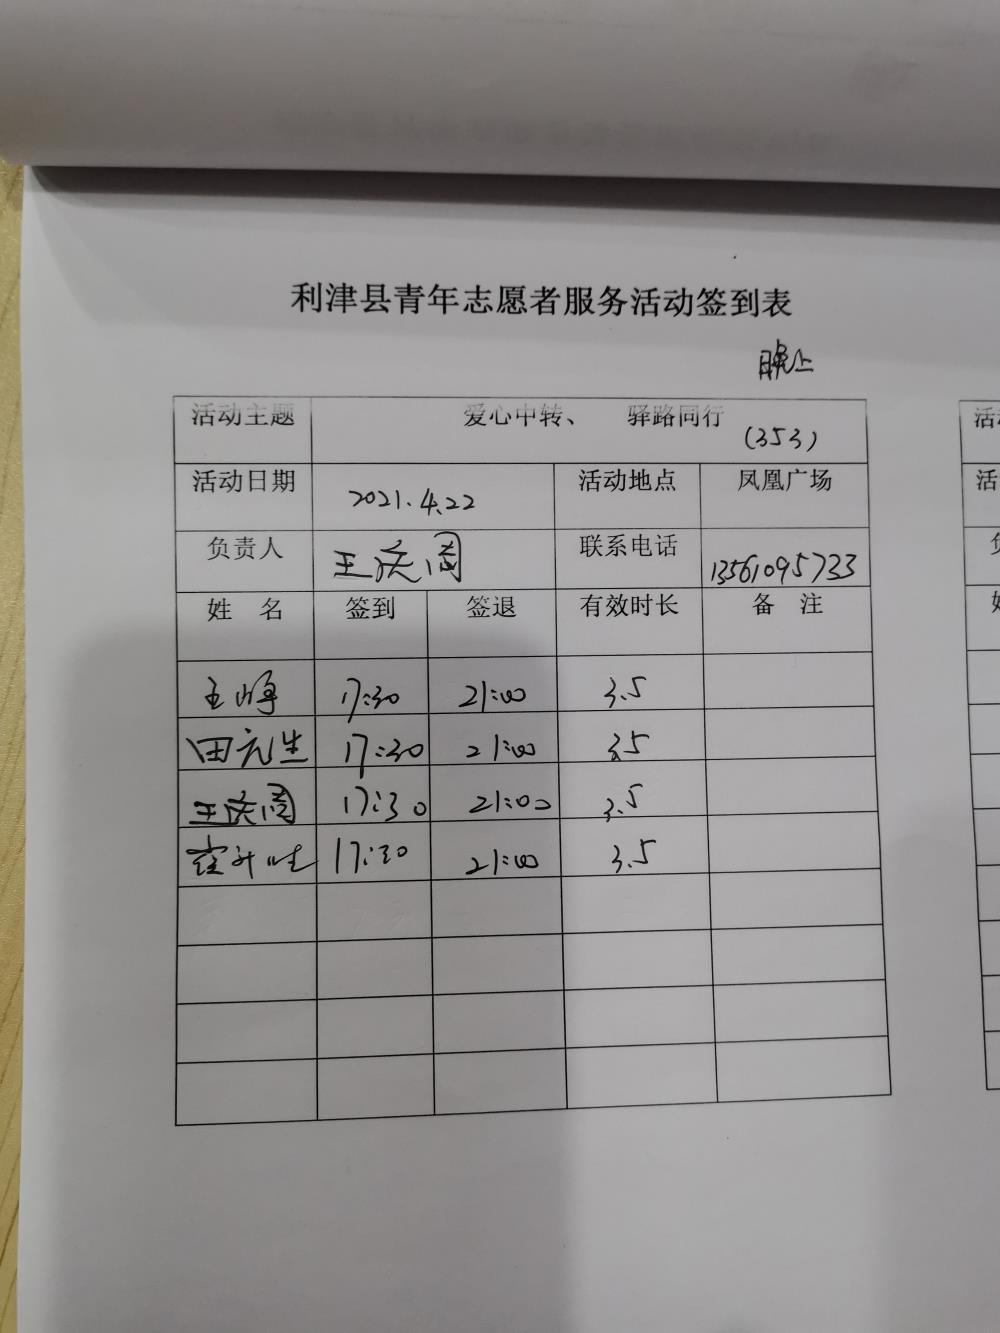 利津县青年志愿者服务活动签到表
晚上
活动主题 爱心中转、 驿路同行 (353)
活动日期 2021.4.22 活动地点 凤凰广场
负责人 王庆周 联系电话 13561095733
姓 名 签到 签退 有效时长 备 注
王峥 17:30 21:00 3.5
田元生 17:30 21:00 3.5
王庆周 17:30 21:00 3.5
17:30 21:00 3.5
活
活